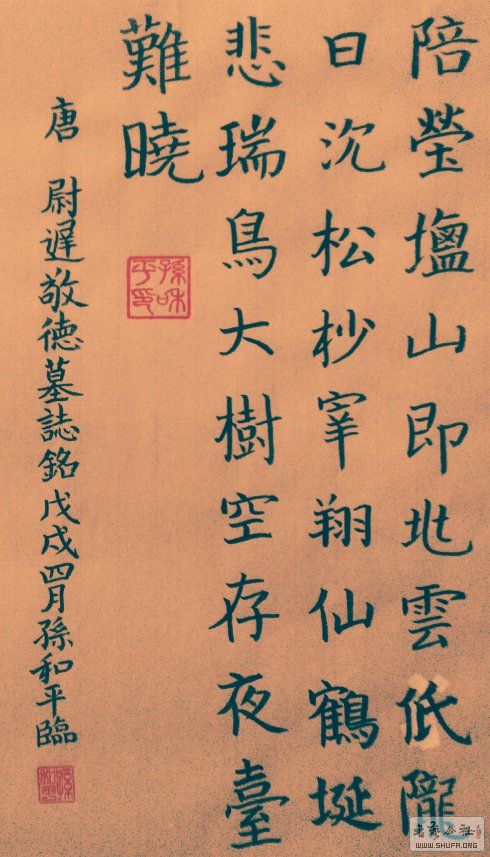 陪塋山即兆雲低隴
日沉松杪宰翔仙鶴埏
悲瑞鳥大樹空存夜臺
難曉
孫和平印
唐 尉遲敬德墓誌銘戊戌四月孫和平臨
书艺公社
WWW.SHUFA.ORG